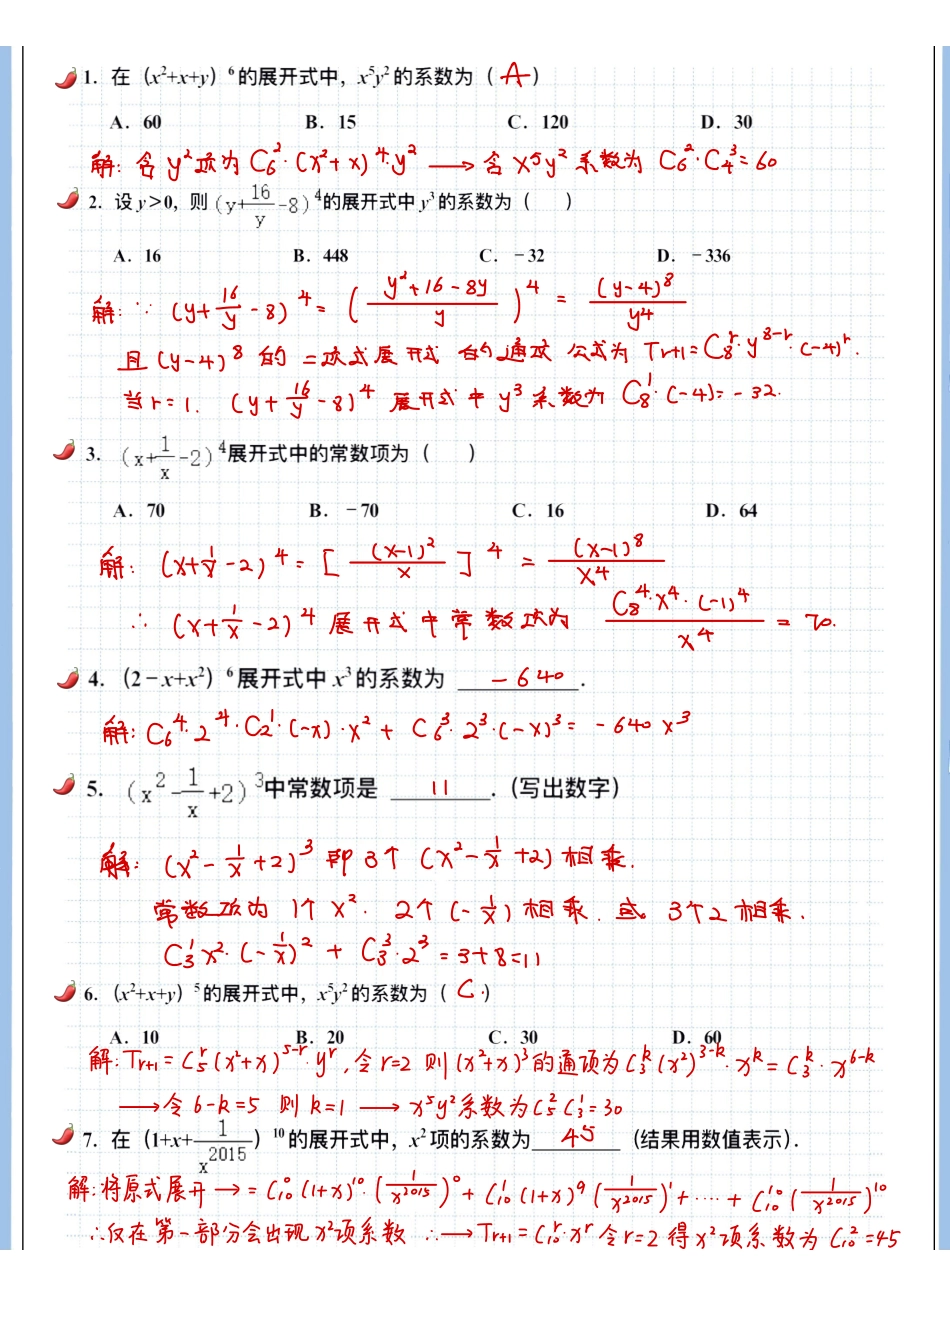 1. 在（x²+x+y）⁶的展开式中，x⁵y²的系数为（ A ）
A．60 B．15 C．120 D．30
解：含y²项为C₆²·(x²+x)⁴·y² ⟶ 含x⁵y²系数为 C₆²·C₄³=60
2. 设 y＞0，则 (y+16/y-8)⁴的展开式中 y³的系数为（ ）
A．16 B．448 C．-32 D．-336
解：∵ (y+16/y-8)⁴=( (y²+16-8y)/y )⁴ = (y-4)⁸/y⁴
且(y-4)⁸的二项式展开式的通项公式为Tr+1=C₈ʳ·y⁸⁻ʳ·(-4)ʳ.
当r=1. (y+16/y-8)⁴展开式中y³系数为C₈¹·(-4)=-32.
3. (x+1/x-2)⁴展开式中的常数项为（ ）
A．70 B．-70 C．16 D．64
解：(x+1/x-2)⁴=[ (x-1)²/x ]⁴ = (x-1)⁸/x⁴
∴ (x+1/x-2)⁴展开式中常数项为 C₈⁴·x⁴·(-1)⁴/x⁴ = 70.
4.（2-x+x²）⁶展开式中 x³的系数为 -640 ．
解：C₆⁴·2⁴·C₂¹·(-x)·x²+C₆³·2³·(-x)³=-640x³
5. (x²-1/x+2)³中常数项是 11 ．（写出数字）
解：(x²-1/x+2)³即3个(x²-1/x+2)相乘.
常数项为1个x². 2个(-1/x)相乘.或3个2相乘.
C₃¹x²·(-1/x)²+C₃³·2³=3+8=11
6.（x²+x+y）⁵的展开式中，x⁵y²的系数为（ C ）
A．10 B．20 C．30 D．60
解：Tr+1=C₅ʳ(x²+x)⁵⁻ʳ·yʳ,令r=2则(x²+x)³的通项为C₃ᵏ(x²)³⁻ᵏ·xᵏ=C₃ᵏ·x⁶⁻ᵏ
⟶令6-k=5 则k=1⟶x⁵y²系数为C₅²C₃¹=30
7. 在（1+x+1/x²⁰¹⁵）¹⁰的展开式中，x²项的系数为 45 （结果用数值表示）．
解：将原式展开→=C₁₀⁰(1+x)¹⁰·(1/x²⁰¹⁵)⁰+C₁₀¹(1+x)⁹(1/x²⁰¹⁵)¹+····+C₁₀¹⁰(1/x²⁰¹⁵)¹⁰
∴仅在第一部分会出现x²项系数 ∴⟶Tr+1=C₁₀ʳxʳ令r=2得x²项系数为C₁₀²=45